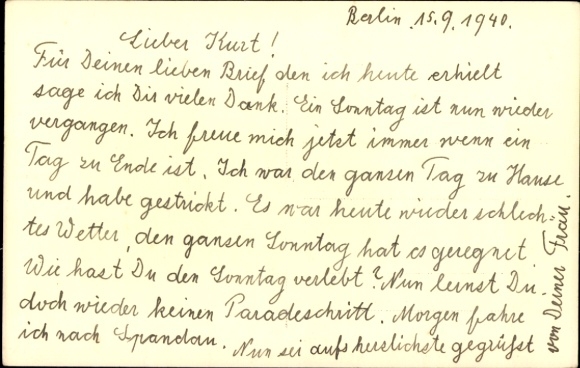 Berlin, 15.9.1940.
Lieber Kurt!
Für Deinen lieben Brief den ich heute erhielt
sage ich Dir vielen Dank. Ein Sonntag ist nun wieder
vergangen. Ich freue mich jetzt immer wenn ein
Tag zu Ende ist. Ich war den ganzen Tag zu Hause
und habe gestrickt. Es war heute wieder schlech-
tes Wetter, den ganzen Sonntag hat es geregnet.
Wie hast Du den Sonntag verlebt? Nun lernst Du
doch wieder keinen Paradeschritt. Morgen fahre
ich nach Spandau. Nun sei aufs herzlichste gegrüßt
von Deiner Frau.